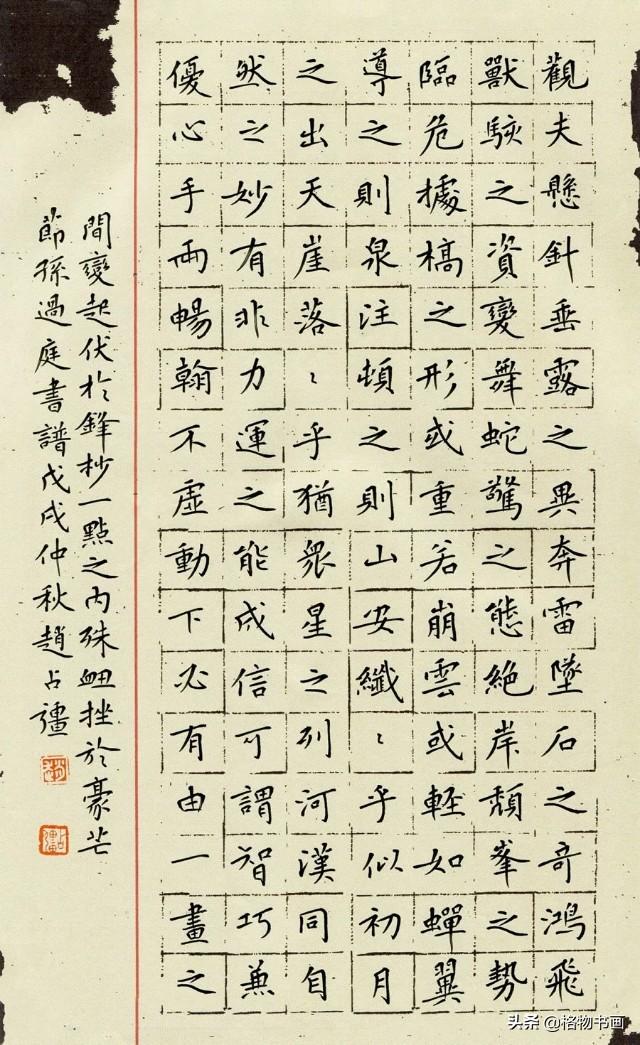 觀夫懸針垂露之異奔雷墜石之奇鴻飛
獸駭之資變舞蛇驚之態絕岸頹峯之勢
臨危據槁之形或重若崩雲或輕如蟬翼
導之則泉注頓之則山安纖〻乎似初月
之出天崖落〻乎猶眾星之列河漢同自
然之妙有非力運之能成信可謂智巧兼
優心手兩暢翰不虛動下必有由一畫之
間變起伏於鋒杪一點之內殊衄挫於豪芒
節孫過庭書譜戊戌仲秋趙占疆
头条 @格物书画